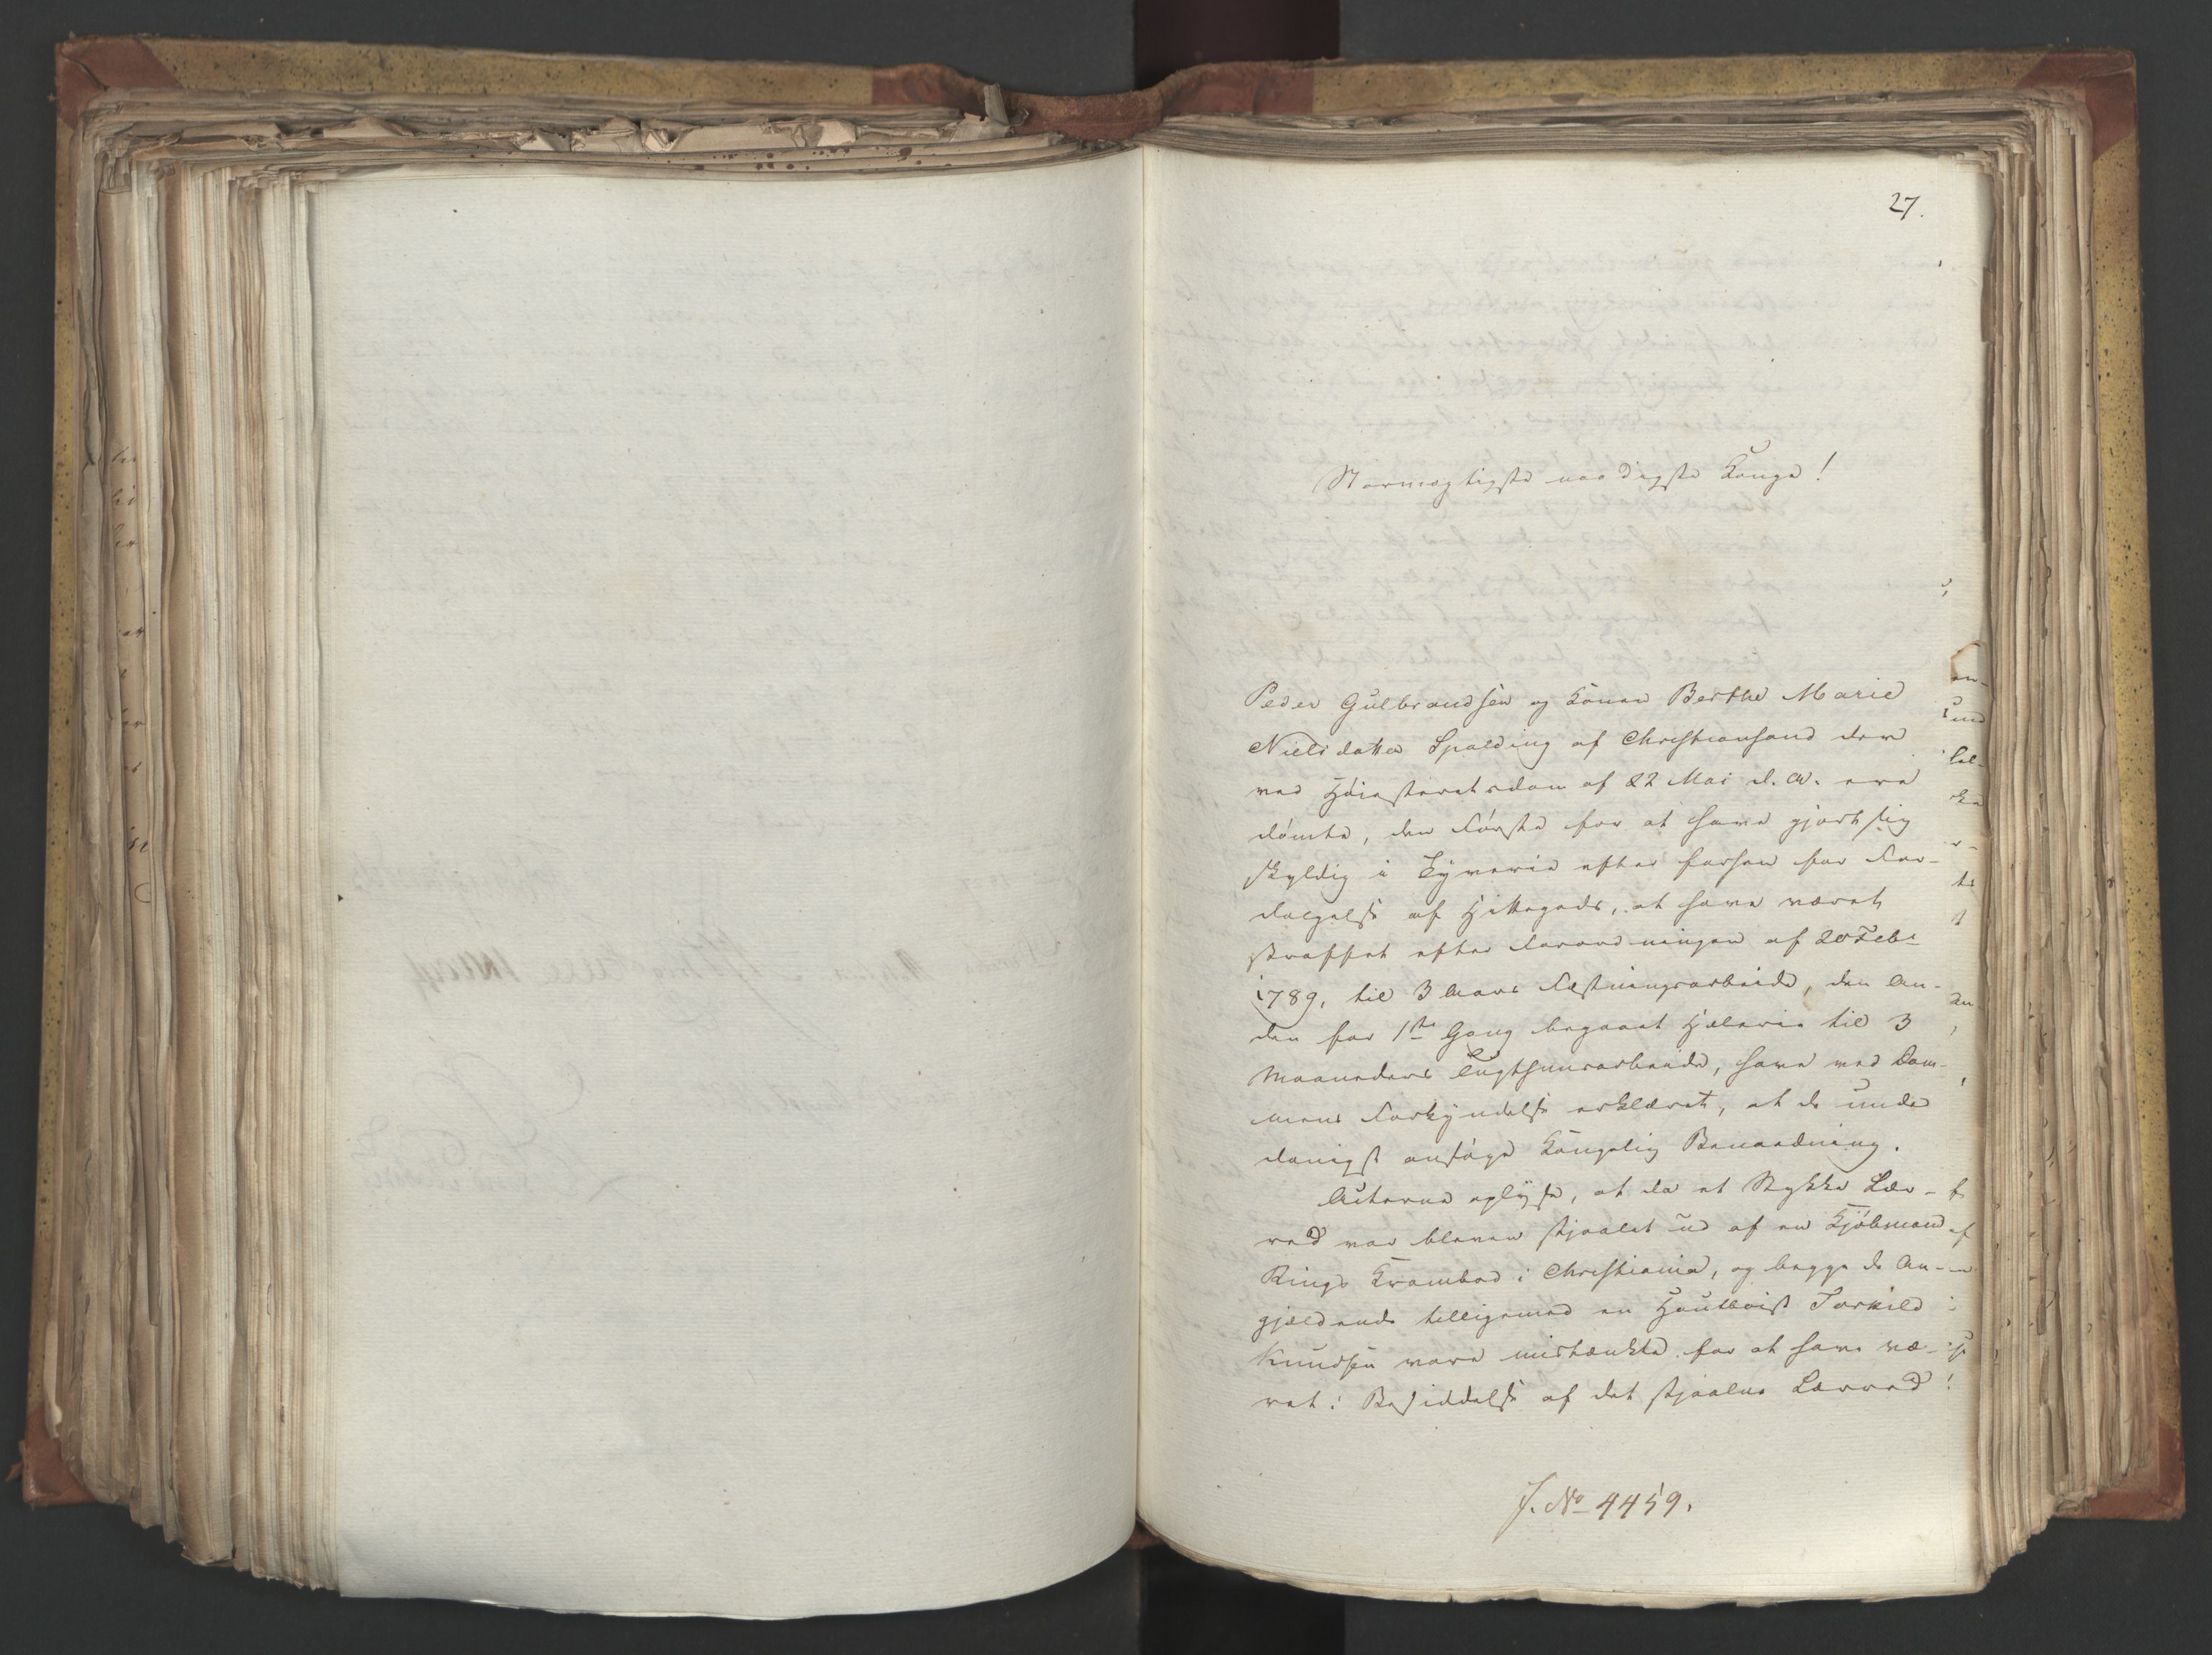 27.
Stormægtigste naadigste Konge!
Peder Gulbrandsen og Konen Berthe Marie
Nielsdatter Spalding af Christiansand der
ved Høiesteretsdom af 22 Mai d. A. ere
dømte, den Første for at have gjort sig
skyldig i Tyverie efter forhen for For-
dølgelse af Hittegods, at have været
straffet efter Forordningen af 20 Feb
1789, til 3 Aars Fæstningsarbeide, den An-
den for 1ste Gang begaaet Hæleri til 3
Maaneders Tugthuusarbeide, have ved Dom-
mens Forkyndelse erklæret, at de under
danigst ansøge Kongelig Benaadning.
Acterne oplyse, at da et Stykke Lær-
red var bleven stjaalet ud af en Kjøbmand
Rings Krambod i Christiania, og begge de An-
gjældende tilligemed en Hautboist Torkild
Knudsen vare mistænkte for at have væ-
ret i Besiddelse af det stjaalne Lærred
J. No 4459.